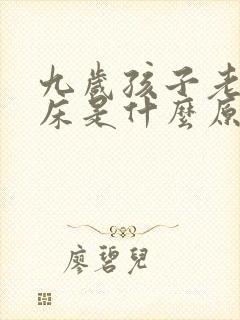 九歲孩子老
床是什麼原
廖碧兒